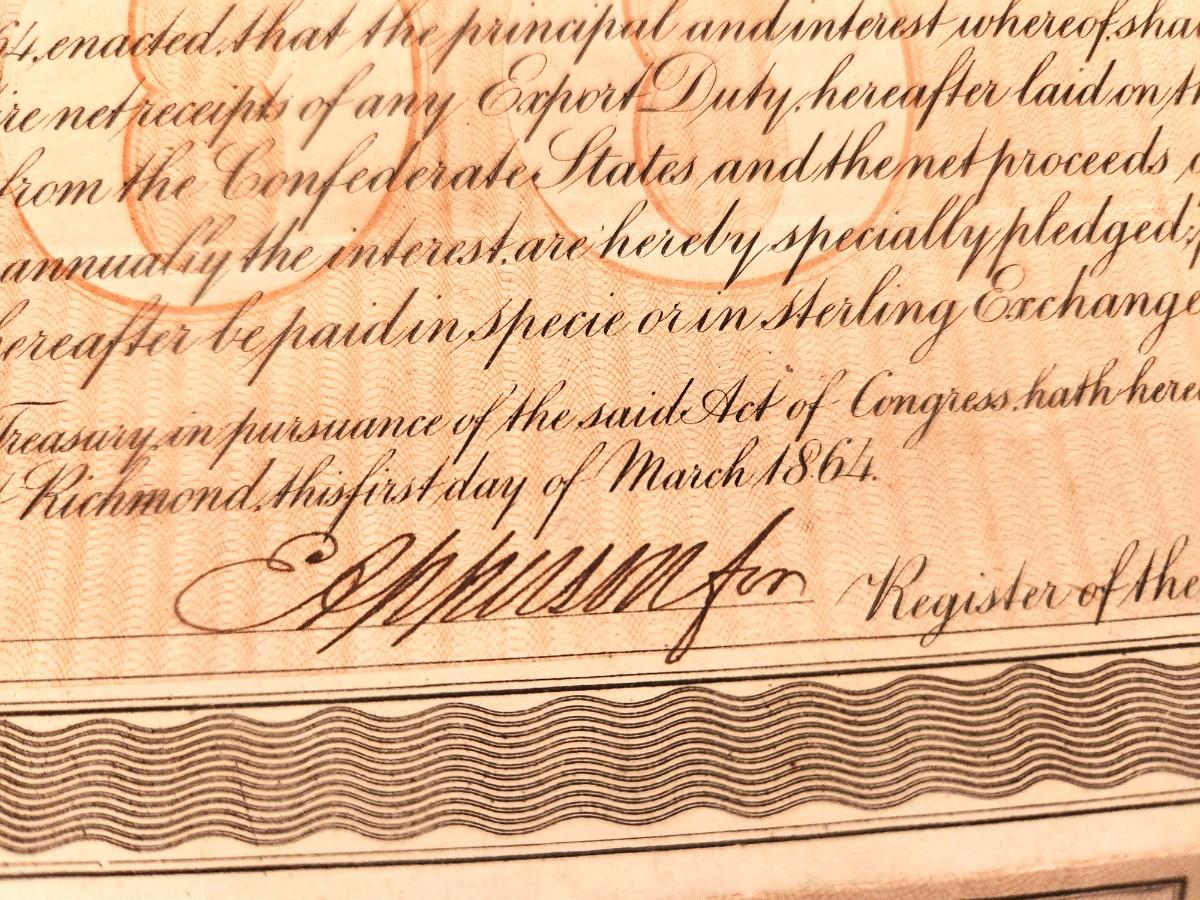 64, enacted, that the principal and interest whereof, shall
net receipts of any Export Duty, hereafter laid on th
from the Confederate States and the net proceeds
annually the interest, are hereby specially pledged;
hereafter be paid in specie or in sterling Exchange
Treasury, in pursuance of the said Act of Congress, hath here
Richmond, this first day of March 1864.
E Apperson for Register of the